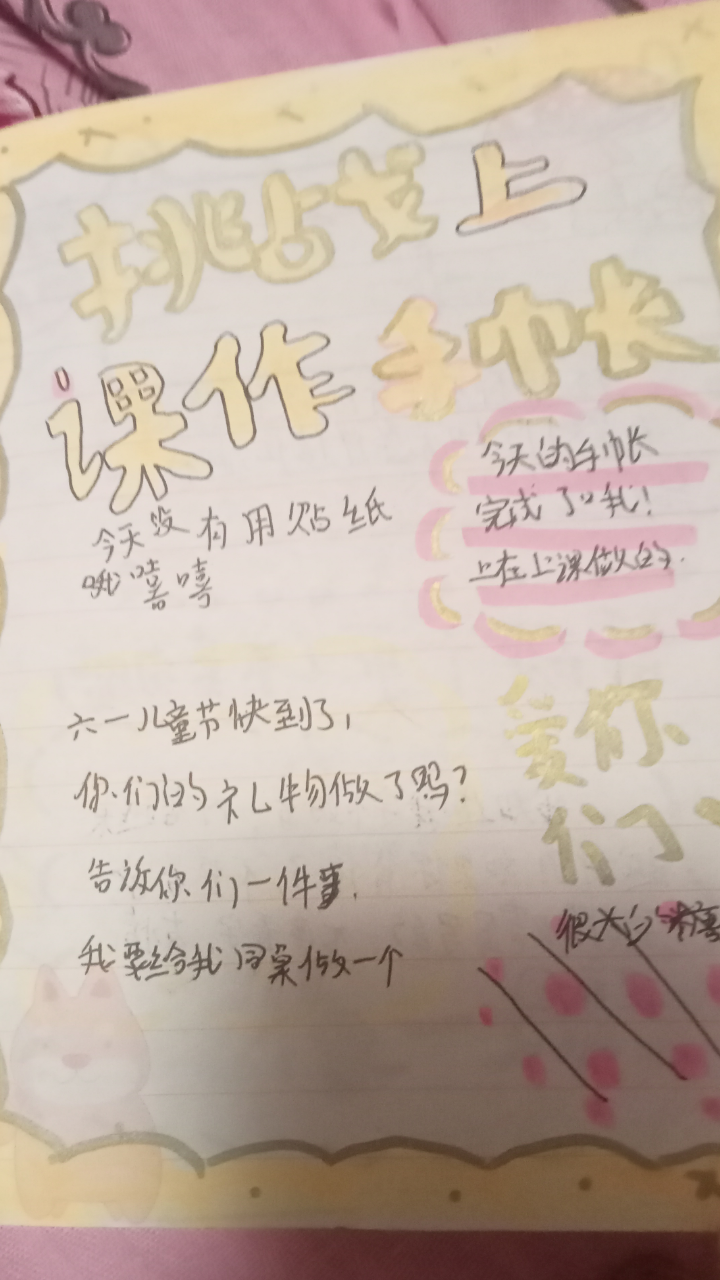 挑战上
课作手帐
今天没有用贴纸
哦嘻嘻
今天的手帐
完成了哦！
在上课做的.
六一儿童节快到了,
你们的礼物做了吗?
告诉你们一件事.
我要给我同桌做一个
爱你
们
很大